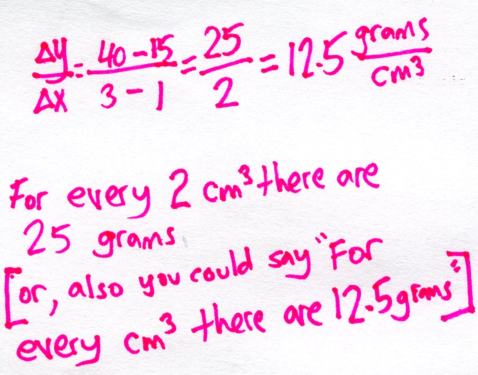 Δy/Δx = 40-15/3-1 = 25/2 = 12.5 grams/cm³
For every 2 cm³ there are
25 grams
[or, also you could say "For
every cm³ there are 12.5 grams"]